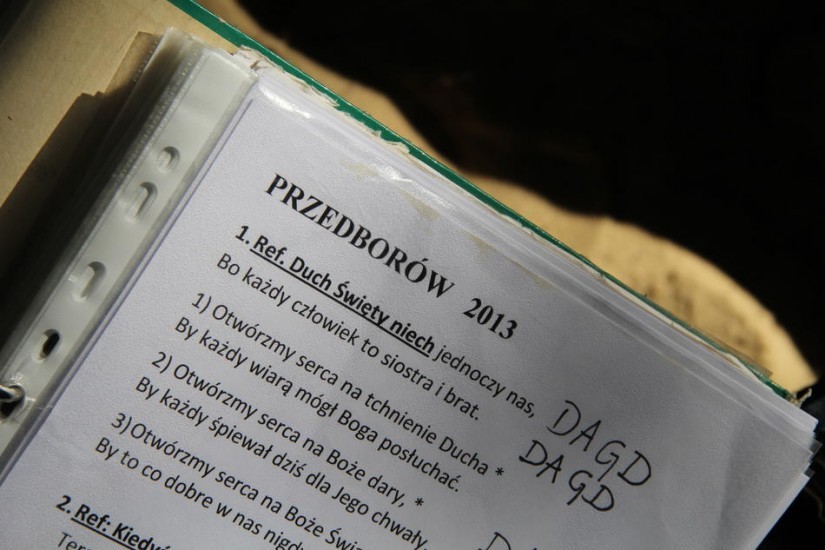 PRZEDBORÓW 2013
1. Ref. Duch Święty niech jednoczy nas,
Bo każdy człowiek to siostra i brat.
1) Otwórzmy serca na tchnienie Ducha * DAGD
By każdy wiarą mógł Boga posłuchać. DAGD
2) Otwórzmy serca na Boże dary, *
By każdy śpiewał dziś dla Jego chwały,
3) Otwórzmy serca na Boże
By to co dobre w nas
2. Ref: